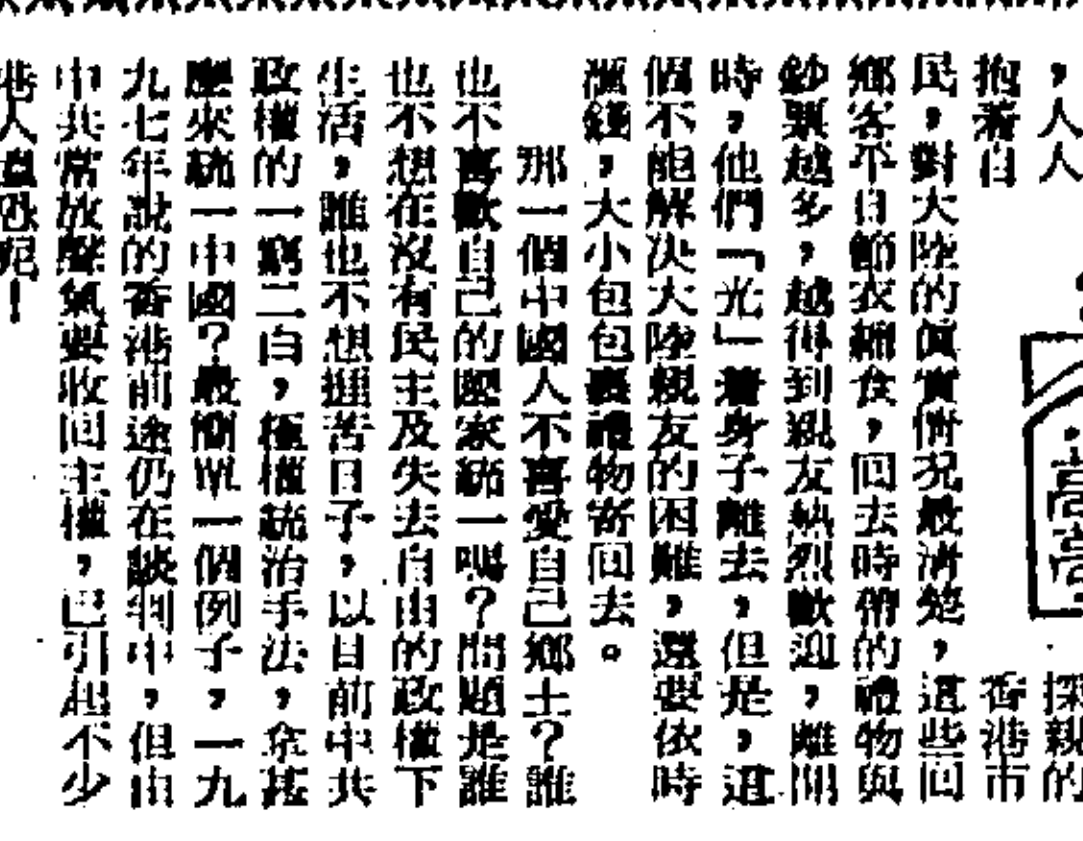 ，人人
探親的
抱着自
香港市
民，對大陸的眞實情况最清楚，這些回
鄉客平日節衣縮食，回去時帶的禮物與
鈔票越多，越得到親友熱烈歡迎，離開
時，他們「光」着身子離去，但是，這
個不能解决大陸親友的困難，還要依時
滙錢，大小包包裹禮物寄回去。
那一個中國人不喜愛自己鄉土？誰
也不喜歡自己的國家統一嗎？問題是誰
也不想在沒有民主及失去自由的政權下
生活，誰也不想挫苦日子，以目前中共
政權的一窮二白，極權統治手法，拿甚
麼來統一中國？最簡單一個例子，一九
九七年說的香港前途仍在談判中，但由
中共常放聲氣要收回主權，已引起不少
港人恐呢！